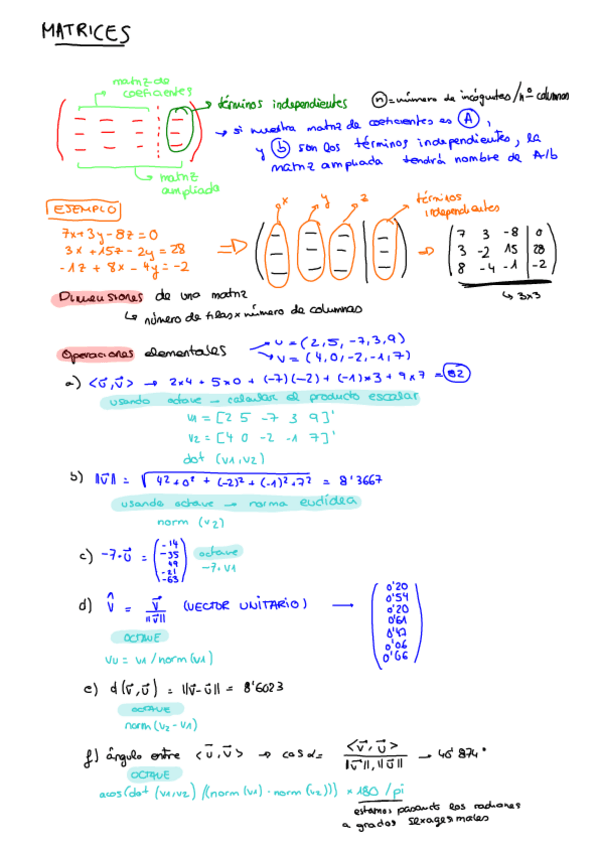 MATRICES
matriz de
coeficientes
términos independientes
n = número de incógnitas / nº columnas
→ si nuestra matriz de coeficientes es A,
y b son los términos independientes, la
matriz ampliada tendrá nombre de A/b
matriz
ampliada
EJEMPLO
x y z términos
independientes
7x+3y-8z=0
3x+15z-2y=28
-1z+8x-4y=-2
7 3 -8 | 0
3 -2 15 | 28
8 -4 -1 | -2
↳ 3x3
Dimensiones de una matriz
↳ número de filas x número de columnas
Operaciones elementales
u = (2,5,-7,3,9)
v = (4,0,-2,-1,7)
a) <u⃗,v⃗> → 2x4 + 5x0 + (-7)(-2) + (-1)*3 + 9x7 = 82
usando octave → calcular el producto escalar
v1 = [2 5 -7 3 9]'
v2 = [4 0 -2 -1 7]'
dot (v1,v2)
b) ||v⃗|| = √4²+0²+(-2)²+(-1)²+7² = 8'3667
usando octave → norma euclídea
norm (v2)
c) -7·u⃗ = (-14
-35
49
-21
-63)
octave
-7·v1
d) v̂ = v⃗/||v⃗|| (VECTOR UNITARIO) →
0'20
0'54
0'20
0'61
0'47
0'06
0'66
OCTAVE
vu = v1/norm(v1)
e) d(v⃗,u⃗) = ||v⃗-u⃗|| = 8'6023
OCTAVE
norm(v2-v1)
f) ángulo entre <u⃗,v⃗> → cos α = <v⃗,u⃗>/||v⃗||,||u⃗|| → 46'874°
OCTAVE
acos(dot (v1,v2)/(norm(v1)·norm(v2))) * 180/pi
estamos pasando los radianes
a grados sexagesimales